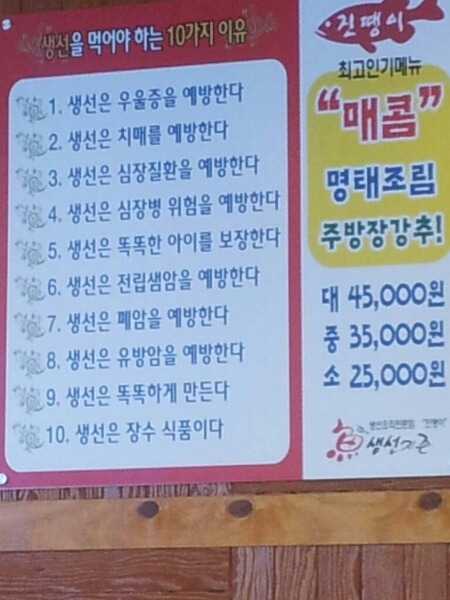 생선을 먹어야 하는 10가지 이유
1. 생선은 우울증을 예방한다
2. 생선은 치매를 예방한다
3. 생선은 심장질환을 예방한다
4. 생선은 심장병 위험을 예방한다
5. 생선은 똑똑한 아이를 보장한다
6. 생선은 전립샘암을 예방한다
7. 생선은 폐암을 예방한다
8. 생선은 유방암을 예방한다
9. 생선은 똑똑하게 만든다
10. 생선은 장수 식품이다
진땡이
최고인기메뉴
“매콤”
명태조림
주방장강추!
대 45,000원
중 35,000원
소 25,000원
생선요리전문점 "진땡이"
생선기준